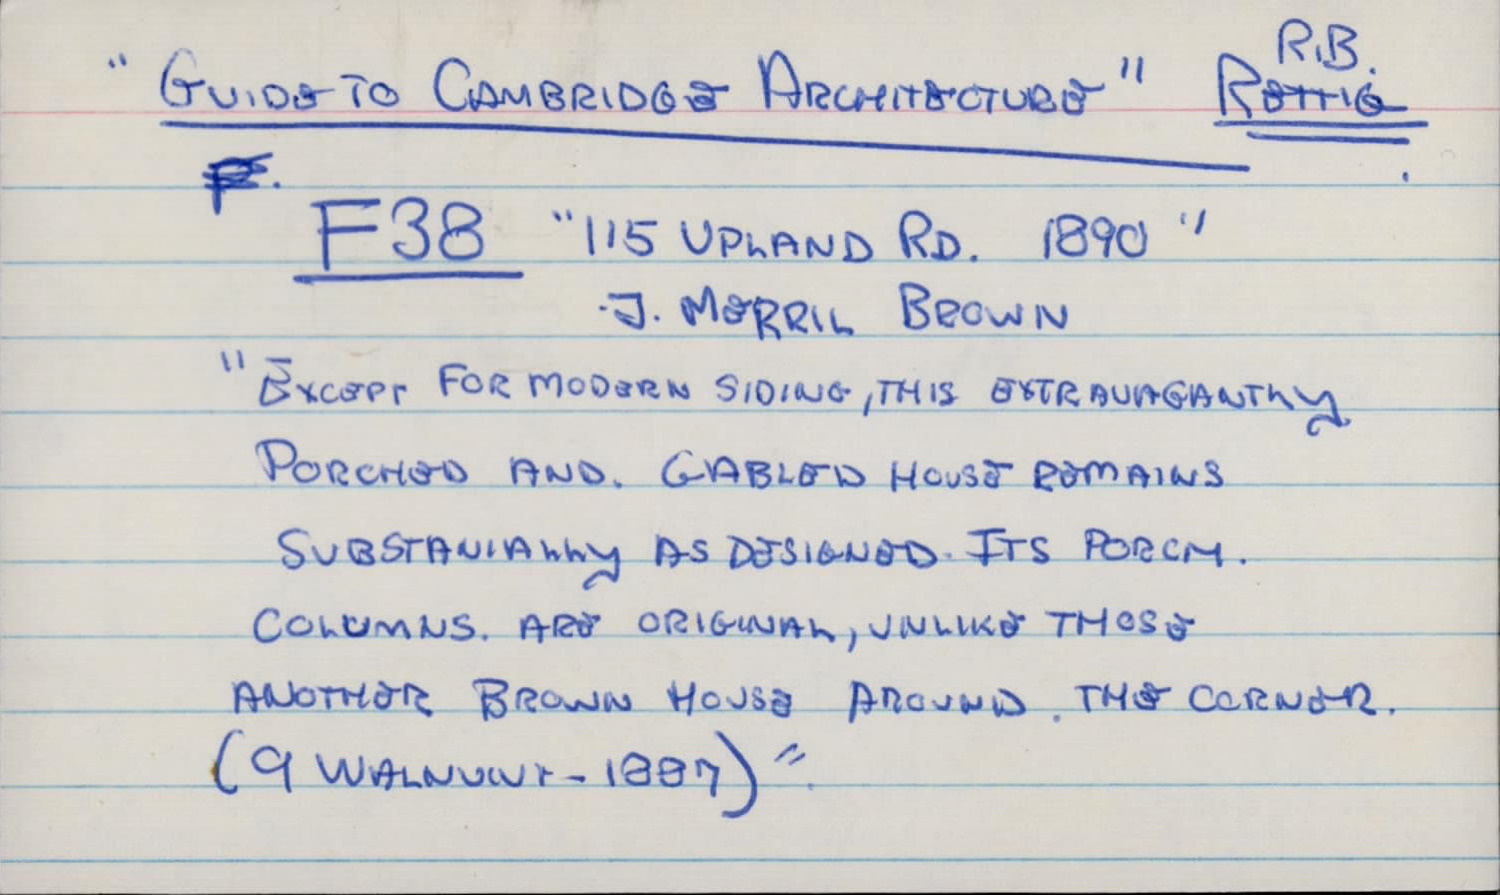 R.B.
"GUIDE TO CAMBRIDGE ARCHITECTURE" RETTIG
F.
F38 "115 UPLAND RD. 1890"
J. MERRIL BROWN
"EXCEPT FOR MODERN SIDING, THIS EXTRAVAGANTLY
PORCHED AND. GABLED HOUSE REMAINS
SUBSTANIALLY AS DESIGNED. ITS PORCH.
COLUMNS. ARE ORIGINAL, UNLIKE THOSE
ANOTHER BROWN HOUSE AROUND. THE CORNER.
(9 WALNUNT - 1887)".